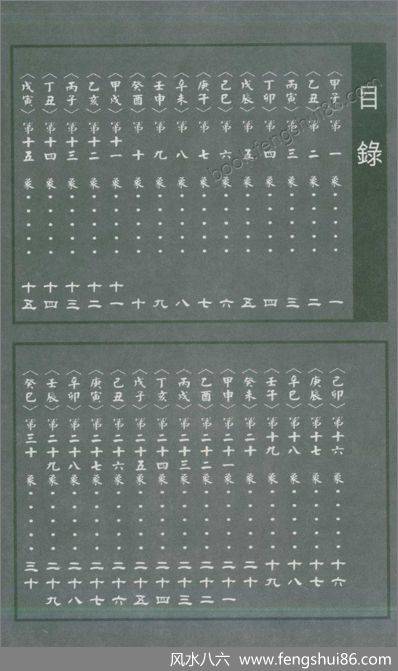 目錄
〈甲子〉第一象・・・・・一
〈乙丑〉第二象・・・・・二
〈丙寅〉第三象・・・・・三
〈丁卯〉第四象・・・・・四
〈戊辰〉第五象・・・・・五
〈己巳〉第六象・・・・・六
〈庚午〉第七象・・・・・七
〈辛未〉第八象・・・・・八
〈壬申〉第九象・・・・・九
〈癸酉〉第十象・・・・・十
〈甲戌〉第十一象・・・・・十一
〈乙亥〉第十二象・・・・・十二
〈丙子〉第十三象・・・・・十三
〈丁丑〉第十四象・・・・・十四
〈戊寅〉第十五象・・・・・十五
〈己卯〉第十六象・・・・・十六
〈庚辰〉第十七象・・・・・十七
〈辛巳〉第十八象・・・・・十八
〈壬午〉第十九象・・・・・十九
〈癸未〉第二十象・・・・・二十
〈甲申〉第二十一象・・・・・二十一
〈乙酉〉第二十二象・・・・・二十二
〈丙戌〉第二十三象・・・・・二十三
〈丁亥〉第二十四象・・・・・二十四
〈戊子〉第二十五象・・・・・二十五
〈己丑〉第二十六象・・・・・二十六
〈庚寅〉第二十七象・・・・・二十七
〈辛卯〉第二十八象・・・・・二十八
〈壬辰〉第二十九象・・・・・二十九
〈癸巳〉第三十象・・・・・三十
book.fengshui86.com
风水八六 www.fengshui86.com